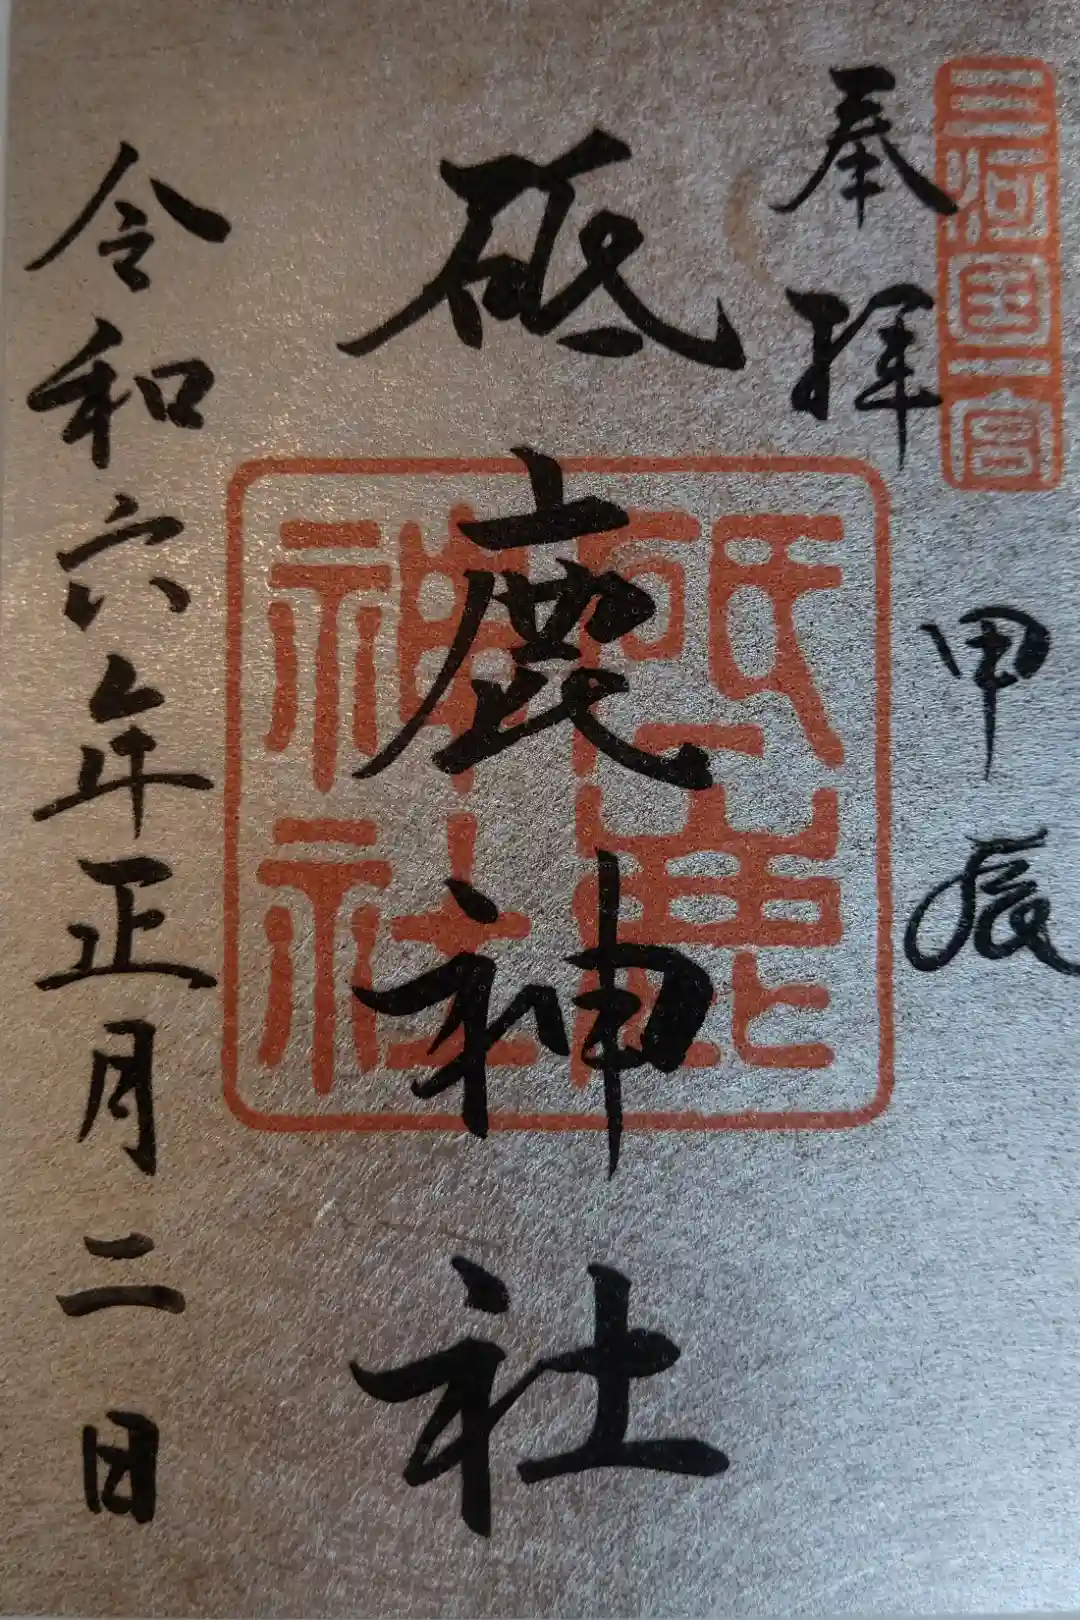 三河国一宮
奉拝
甲辰
砥鹿神社
砥鹿
神社
令和六年正月二日